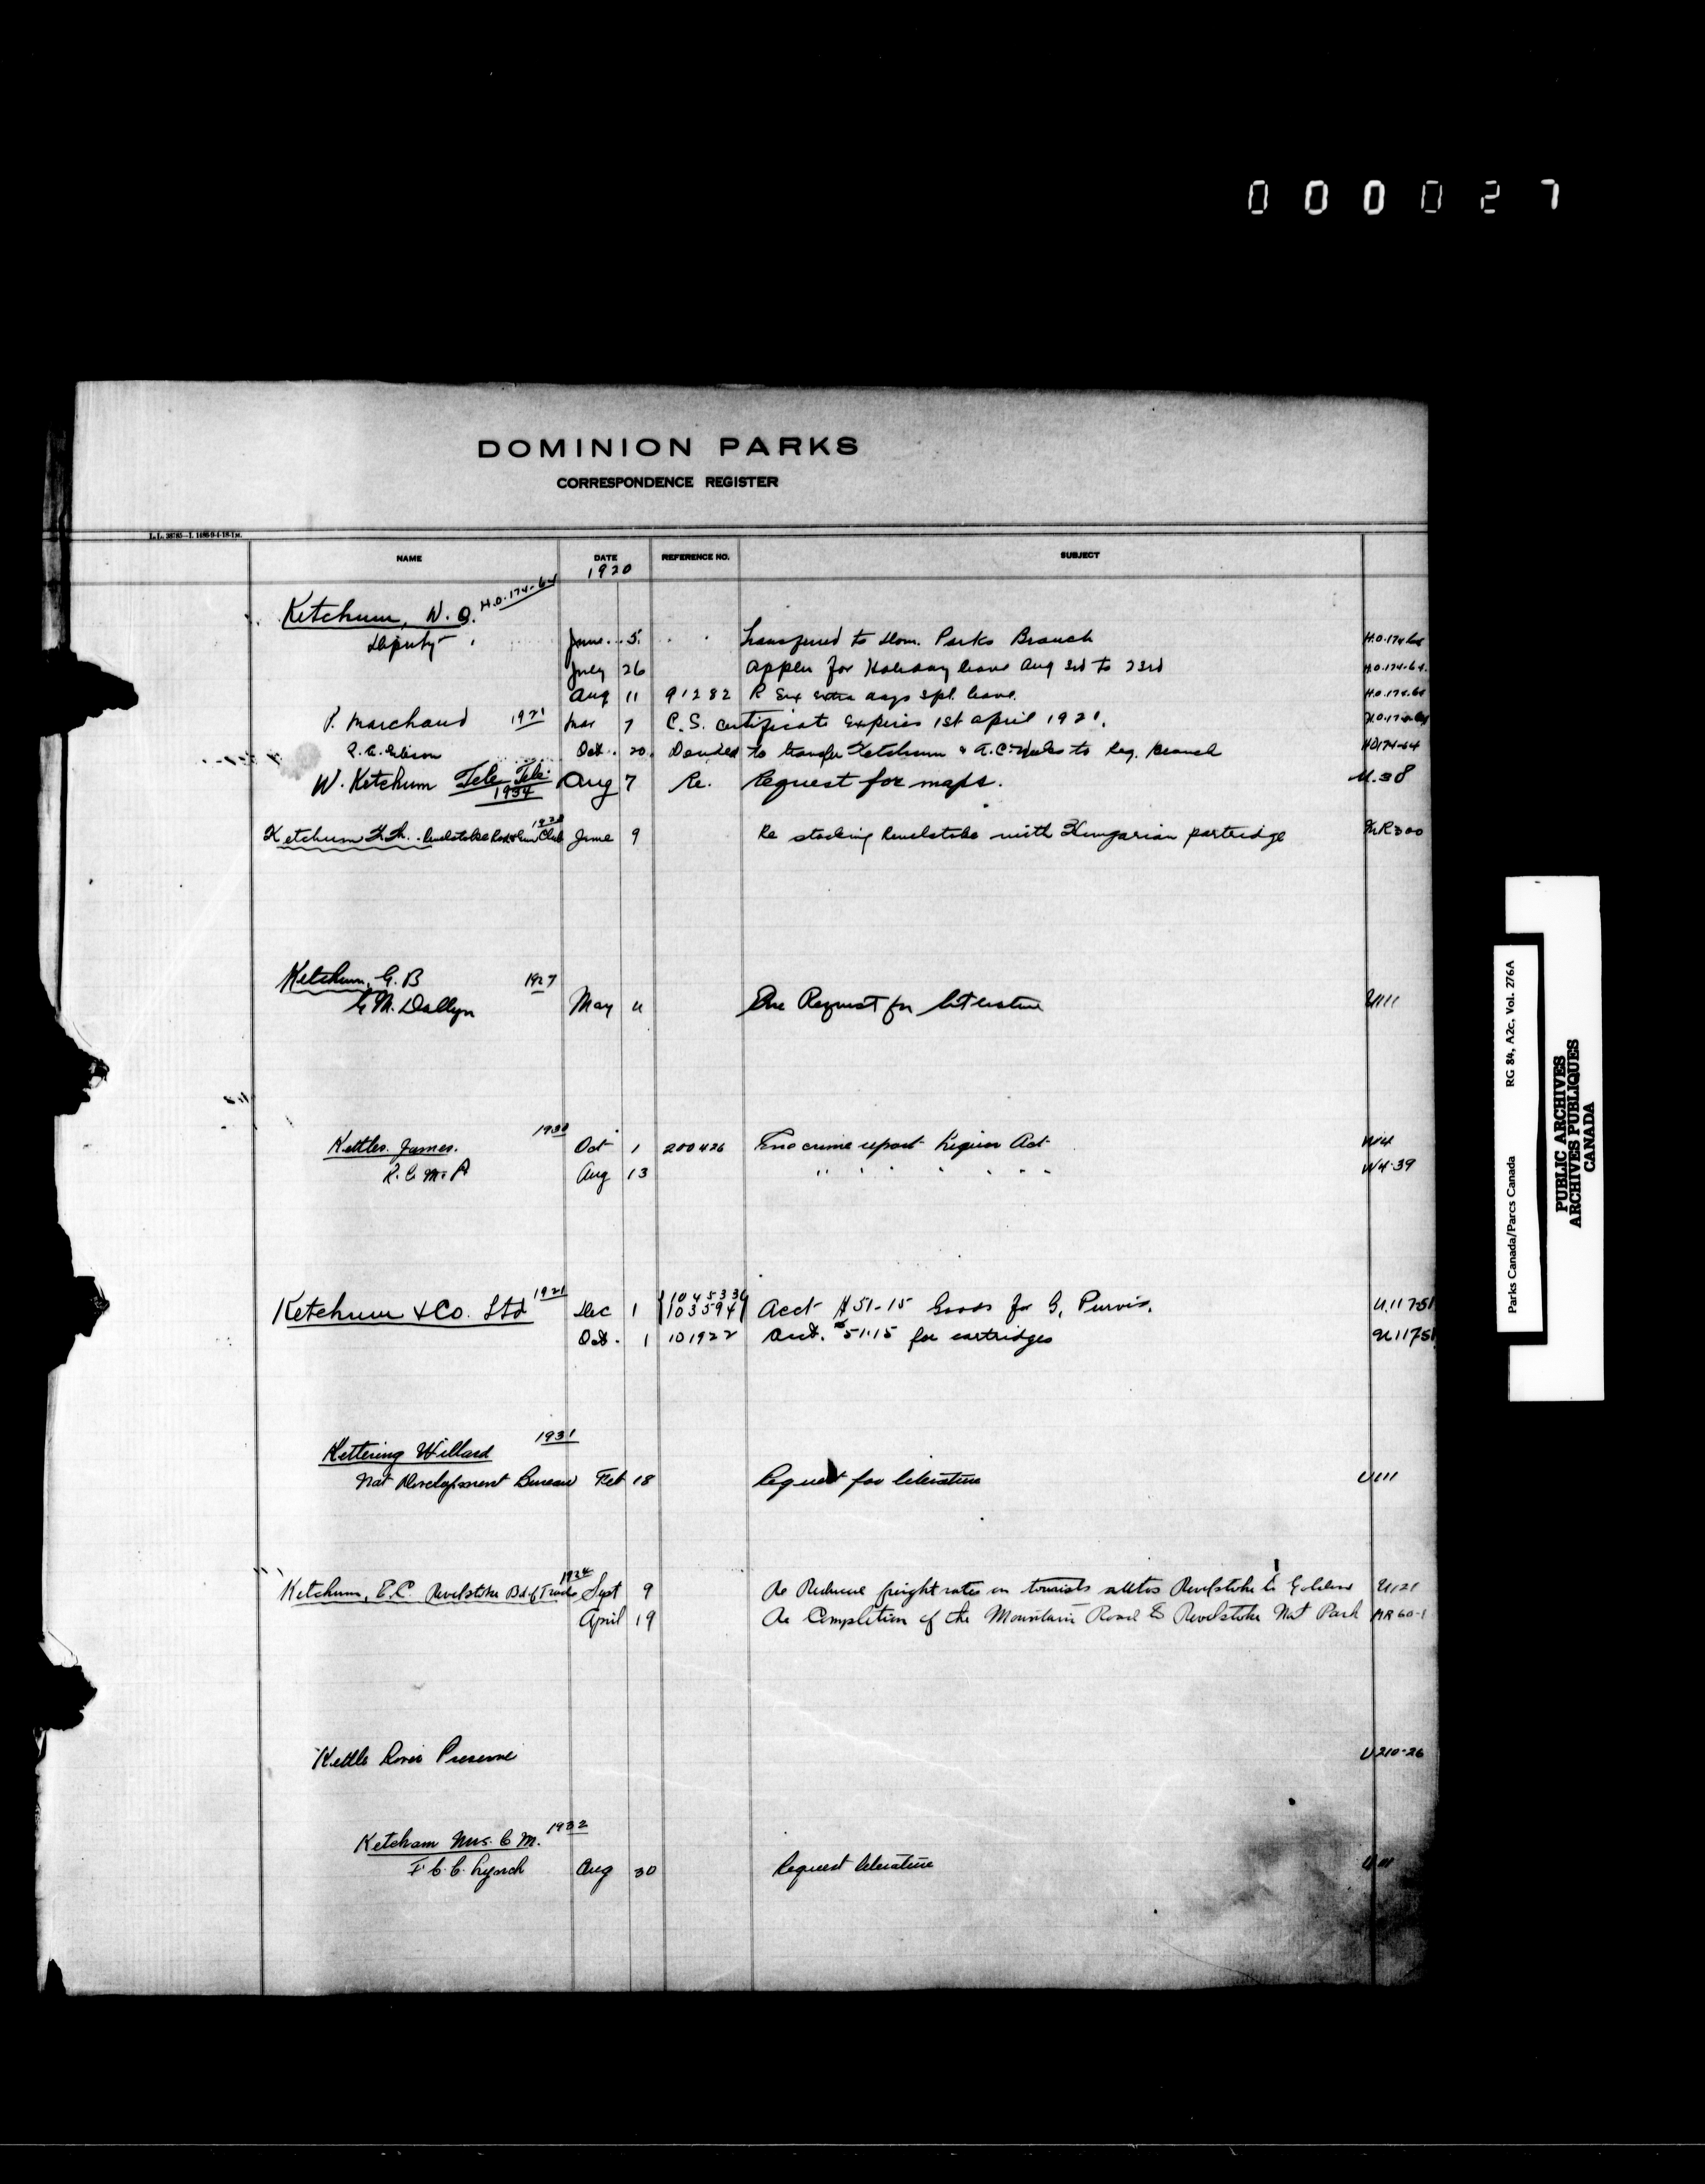 000027
DOMINION PARKS
CORRESPONDENCE REGISTER
NAME DATE REFERENCE NO. SUBJECT
1920
Ketchum, W. Q. H.O.174-64
Deputy June 5 Transferred to Dom. Parks Branch H.O.174-64
July 26 Applcn for Holiday leave Aug 3rd to 23rd H.O.174-64
Aug 11 91282 R Six extra days spl. leave. H.O.174-64
P. Marchand 1921 Mar 7 C.S. certificate expires 1st April 1921. H.O.174-64
Oct. 20. to transfer Ketchum & to Reg. Branch HO174-64
W. Ketchum Tele Tele: 1934 Aug 7 Re. Request for maps. U.38
Ketchum Revelstoke Rod & Gun Club June 9 Re stocking Revelstoke with Hungarian partridge MR300
Ketchum, G. B 1927
G M. Dallyn May 4 Request for literature U111
Kettles. James. 1930 Oct 1 200426 crime report Liquor Act W4
R.C.M.P Aug 13 " " " " " " W4-39
Ketchum & Co. Ltd 1921 Dec 1 {1045336 103594} Acct \#51-15 Goods for G. Purvis. U.117-51
Oct. 1 101922 Acct. \#51.15 for cartridges U117-51
Kettering Willard 1931
Nat Development Bureau Feb 18 Request for literature U111
Ketchum, E.C. Revelstoke Bd of Trade 1924 Sept 9 Re Reduced freight rates on tourists autos Revelstoke to Golden U121
April 19 Re Completion of the Mountain Road to Revelstoke Nat Park MR60-1
Kettle River Preserve U210-26
Ketcham Mrs. C M. 1932
F C. C. Lynch Aug 30 Request literature U111
Parks Canada/Parcs Canada RG 84, A2c, Vol. 276A
PUBLIC ARCHIVES
ARCHIVES PUBLIQUES
CANADA